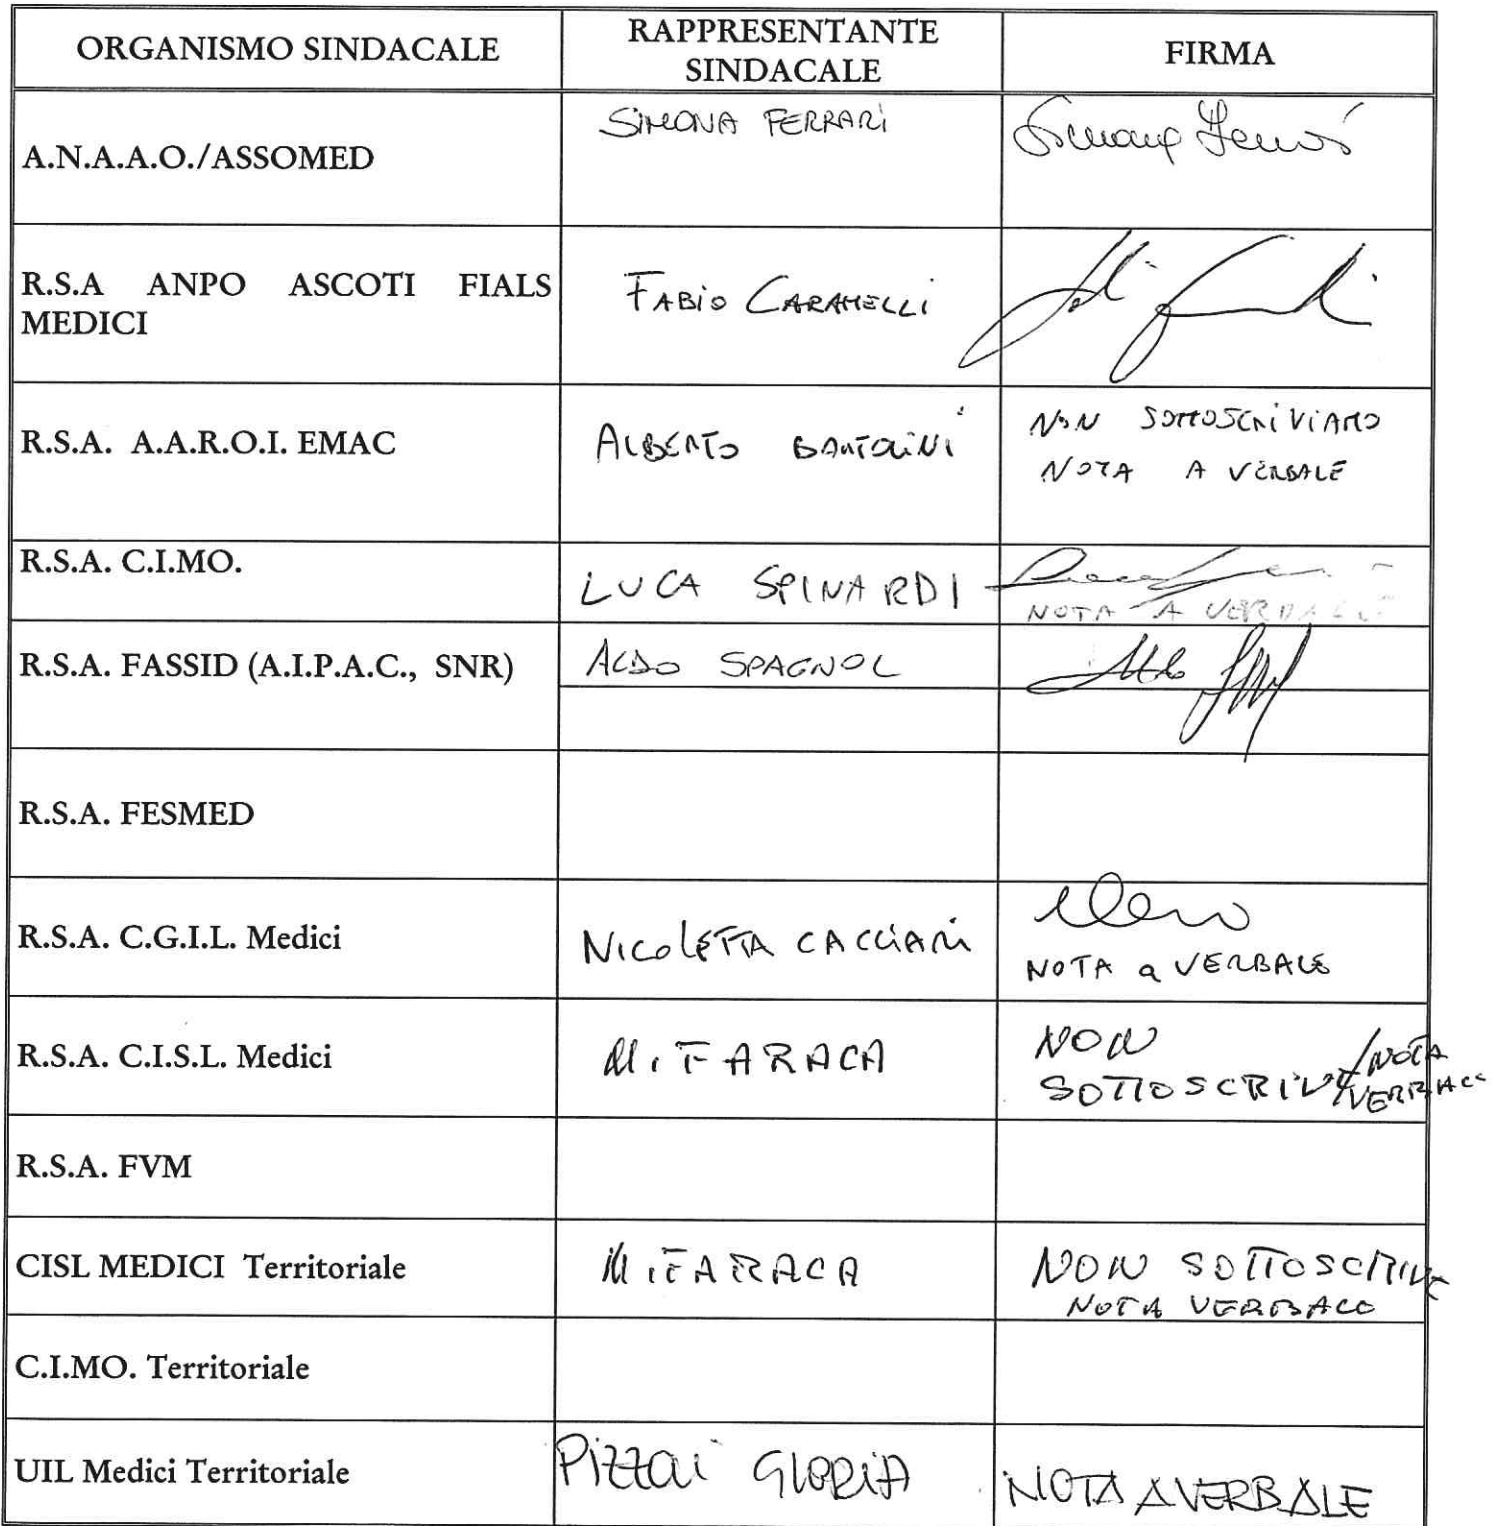 ORGANISMO SINDACALE
RAPPRESENTANTE
SINDACALE
FIRMA
A.N.A.A.O./ASSOMED
SIMONA FERRARI
R.S.A ANPO ASCOTI FIALS
MEDICI
FABIO CARAMELLI
R.S.A. A.A.R.O.I. EMAC
ALBERTO BARTOLINI
NON SOTTOSCRIVIAMO
NOTA A VERBALE
R.S.A. C.I.MO.
LUCA SPINARDI
NOTA A VERBALE
R.S.A. FASSID (A.I.P.A.C., SNR)
ALDO SPAGNOL
R.S.A. FESMED
R.S.A. C.G.I.L. Medici
NICOLETTA CACCIARI
NOTA a VERBALE
R.S.A. C.I.S.L. Medici
FARACA
NON
SOTTOSCRIVE
/NOTA
VERBALE
R.S.A. FVM
CISL MEDICI Territoriale
FARACA
NON SOTTOSCRIVE
NOTA VERBALE
C.I.MO. Territoriale
UIL Medici Territoriale
GLORIA
NOTA A VERBALE